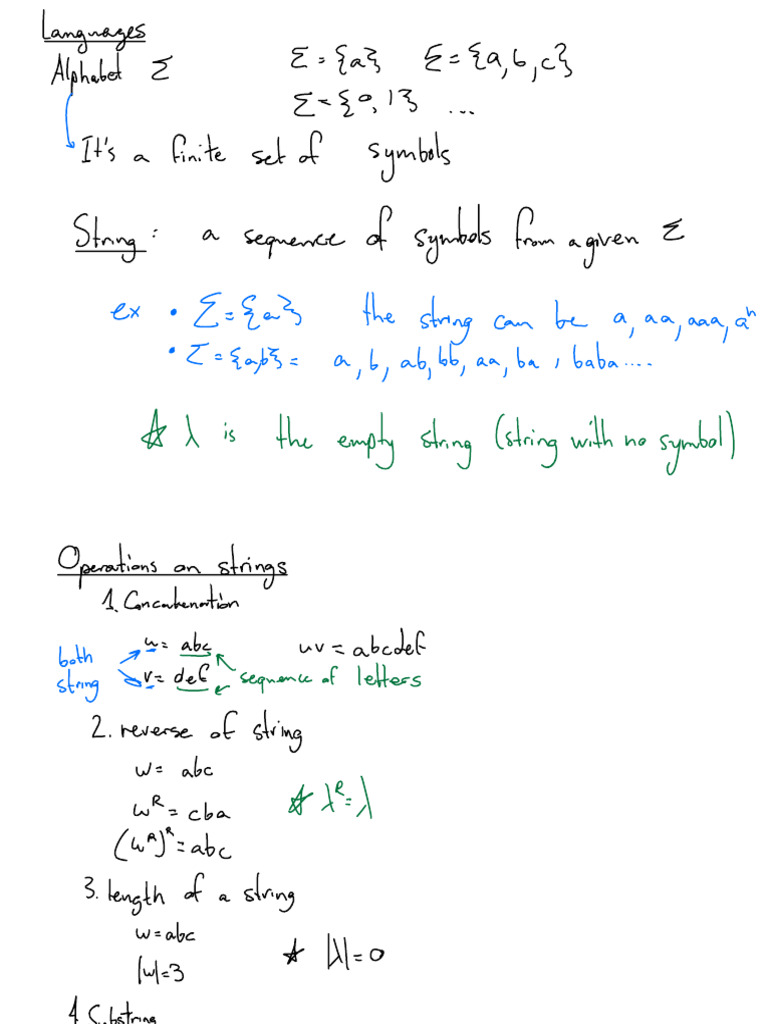 Languages
Alphabet Σ Σ = {a} Σ = {a, b, c}
Σ = {0, 1} ...
It's a finite set of symbols
String: a sequence of symbols from a given Σ
ex • Σ = {a} the string can be a, aa, aaa, aⁿ
• Σ = {a,b} = a, b, ab, bb, aa, ba, baba....
☆ λ is the empty string (string with no symbol)
Operations on strings
1. Concatenation
both string u = abc uv = abcdef
v = def sequence of letters
2. reverse of string
w = abc
wᴿ = cba ☆ λᴿ = λ
(wᴿ)ᴿ = abc
3. length of a string
w = abc
|w| = 3 ☆ |λ| = 0
4. Substring